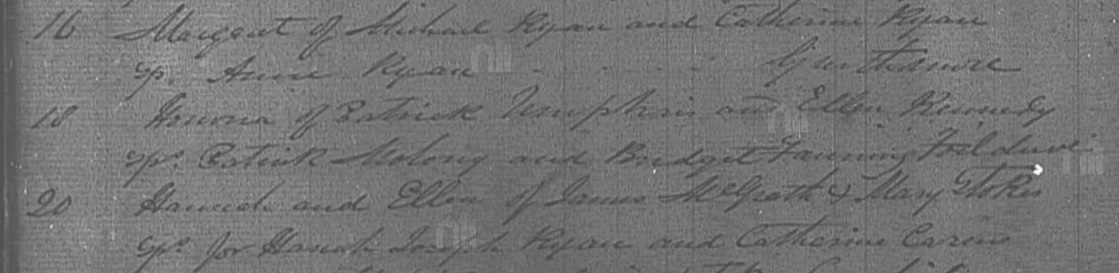 16 Margaret of Michael Ryan and Catherine Ryan
sp. Anne Ryan - - - - Gurthamore
18 Honora of Patrick and Ellen Kennedy
sps. Patrick Molony and Bridget Fanning
20 Hannah and Ellen of James McGrath & Mary Stokes
sps. for Hanah Joseph Ryan and Catherine